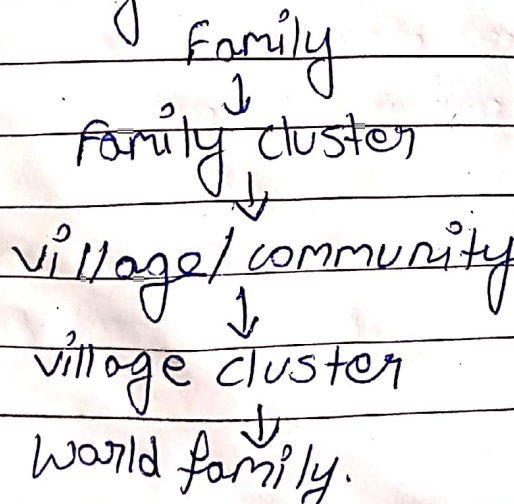 Family
↓
Family cluster
↓
village/community
↓
village cluster
↓
World family.